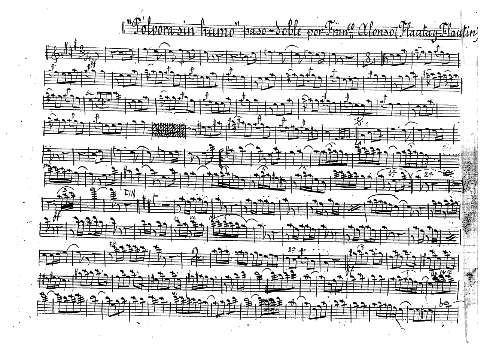 "Pólvora sin humo" paso-doble por Fran.co Alonso (Flauta y Flautín)
FIN